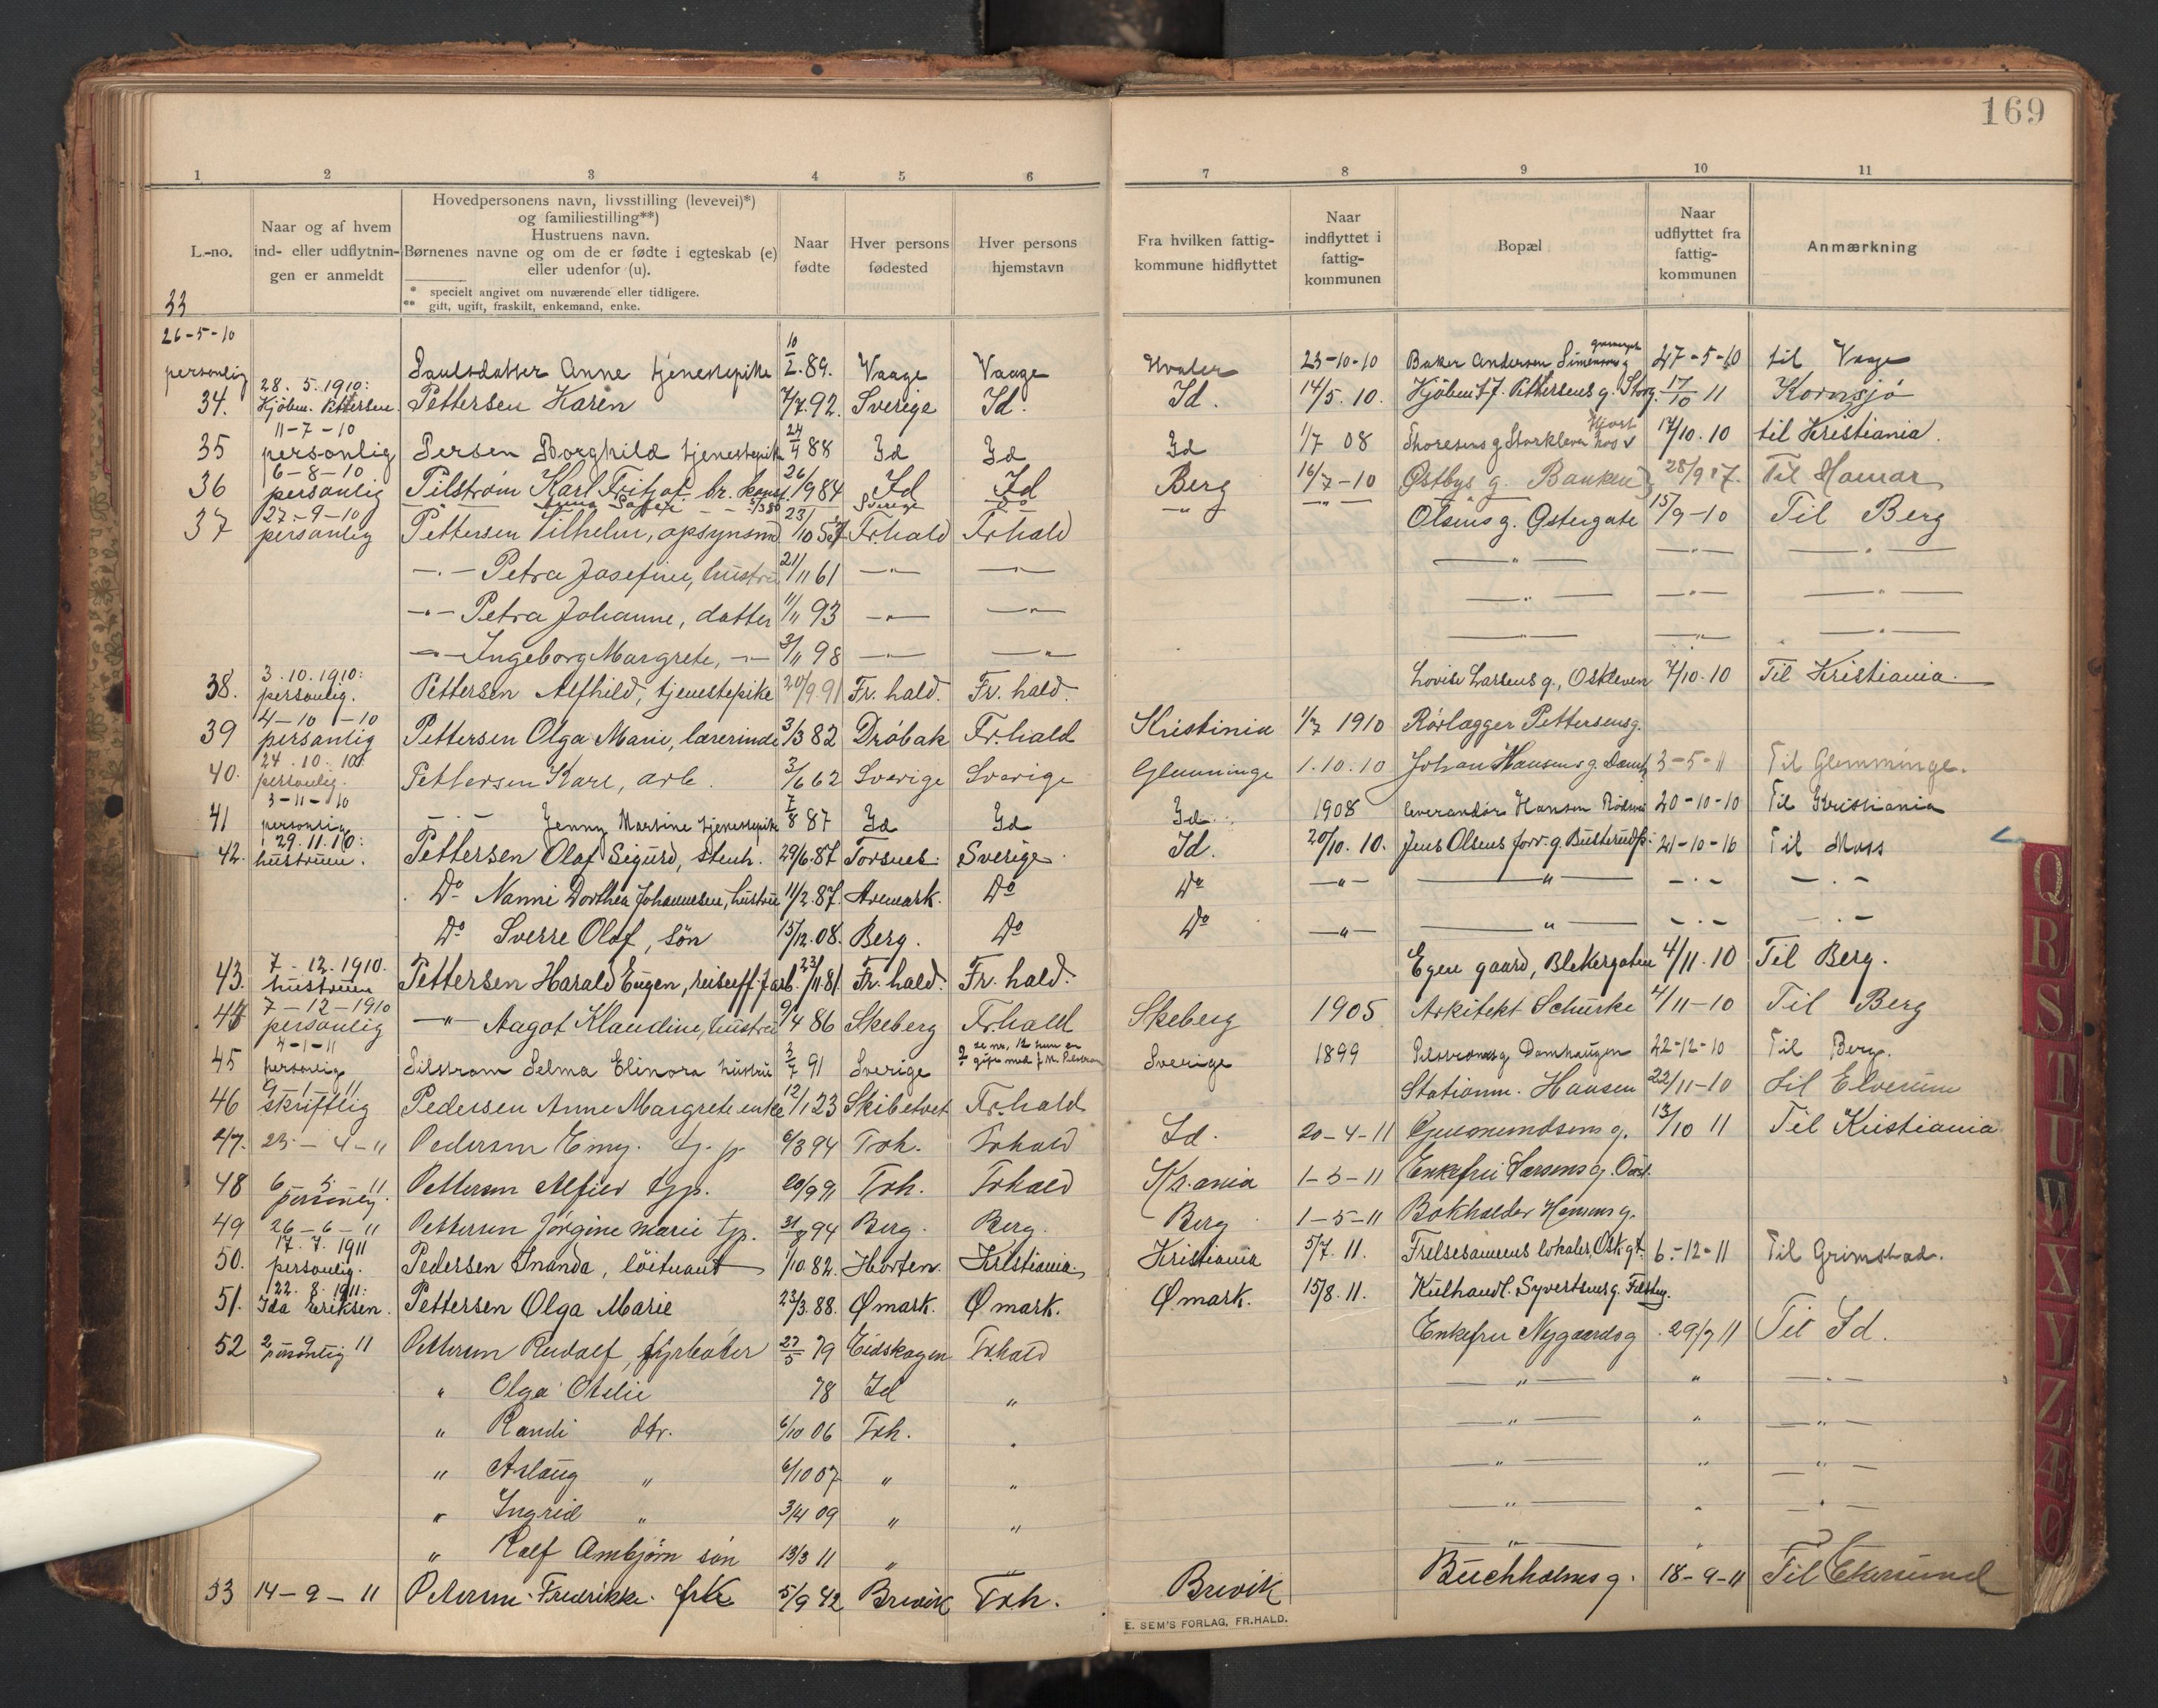 169
1 2 3 4 5 6 7 8 9 10 11
L.-no.
Naar og af hvem
ind- eller udflytnin-
gen er anmeldt
Hovedpersonens navn, livsstilling (levevei)*)
og familiestilling**)
Hustruens navn.
Børnenes navne og om de er fødte i egteskab (e)
eller udenfor (u).
* specielt angivet om nuværende eller tidligere.
** gift, ugift, fraskilt, enkemand, enke.
Naar
fødte
Hver persons
fødested
Hver persons
hjemstavn
Fra hvilken fattig-
kommune hidflyttet
Naar
indflyttet i
fattig-
kommunen
Bopæl
Naar
udflyttet fra
fattig-
kommunen
Anmærkning
33
26-5-10
personlig Paulsdatter Anne tjenestepike 10/2.89. Vaage Vaage Hvaler 23-10-10 Baker Andersen Simensens g 27-5-10 til Vaage
28.5.1910:
34. Kjøbm. Pettersen. Pettersen Karen 7/7.92. Sverige Id. Id. 14/5.10. Kjøbm. Pettersens g. Storg. 17/10 11 Kornsjø
11-7-10
35 personlig Persen Borghild tjenestepike 24/4 88 Id Id Id 1/7 08 Thoresens g Storkleven hos 17/10.10 til Kristiania.
6-8-10
36 personlig Pilstrøm Karl Fritjof 26/9 84 Id Id Berg 16/7-10 Østbys g. Banken 28/9 17. Til Hamar
Sverige Do
27-9-10
37 personlig Pettersen Vilhelm, opsynsmd 23/10 57 Fr.hald Fr.hald Olsens g. Østergate 15/9-10 Til Berg
-"- Petra Josefine, hustru 21/11 61 -"- -"- -"- -"- -"-
-"- Petra Johanne, datter 11/11 93 -"- -"- -"- -"- -"-
-"- Ingeborg Margrete, -"- 3/11 98 -"- -"- -"- -"- -"-
3.10.1910:
38. personlig. Pettersen Alfhild, tjenestepike 20/9.91 Fr. hald. Fr. hald. Lovise Larsens g., Oskleven 7/10.10 Til Kristiania.
4-10-10
39 personlig Pettersen Olga Marie, lærerinde 3/3 82 Drøbak Fr.hald Kristinia 1/7 1910 Rørlægger Pettersens g.
24.10.10:
40. personlig. Pettersen Karl, arb. 3/6 62 Sverige Sverige Glemminge 1.10.10 Johan Hansens g. Damh. 3-5-11 Til Glemminge.
3-11-10
41 personlig -"- Jenny Martine tjenestepike 7/8 87 Id Id Id 1908 leverandør Hansen Rødsvei 20-10-10 Til Kristiania
29.11.10:
42. hustruen. Pettersen Olaf Sigurd, stenh. 29/6.87 Torsnes Sverige Id. 20/10.10. Jens Olsens forr. g. 21-10-16 Til Moss
Do Nanni Dorthea Johannesen, hustru 11/2.87. Aremark. Do Do -"- -"- -"- -"-
Do Sverre Olaf, søn 15/12.08. Berg. Do Do -"- -"- -"- -"-
7-12.1910.
43. hustruen Pettersen Harald Eugen, 23/11.81 Fr. hald. Fr. hald. Egen gaard, Blekergaten 4/11.10 Til Berg.
7-12-1910
44 personlig -"- Aagot Klaudine, hustru 9/4 86 Skeberg Fr.hald Skeberg 1905 Arkitekt Schirke 4/11-10 Til Berg
4-1-11
45 personlig Pilstrøm Selma Elinora hustru 2/7 91 Sverige se nr. 12 hun er gift med Sverige 1899 Pilstrøms g Damhaugen 22-12-10 Til Berg.
9-1-11
46 skriftlig Pedersen Anne Margrete enke 12/1 23 Skibtvet Fr.hald Stationm. Hansen 22/11-10 til Elverum
47. 23-4-11 Pedersen Emy. tj.p. 6/3 94 Frh. Frhald Id. 20-4-11 Gudmundsens g. 13/10 11 Til Kristiania
6 5 11
48 personlig. Pettersen Alfild tjp. 20/9 91 Frh. Frhald Kr.ania 1-5-11 Enkefru Larsens g.
49 26-6-11 Pettersen Jørgine Marie tjp. 31/8 94 Berg. Berg. Berg 1-5-11 Bokholder Hansens g.
17.7.1911
50. personlig. Pedersen Inanda, løitnant 1/10.82. Horten. Kristiania. Kristiania 5/7.11. Frelsesarmeens lokaler, Osk. gt. 6.-12-11 Til Grimstad.
22.8.1911:
51. Ida Eriksen. Pettersen Olga Marie 23/3.88. Ømark. Ømark. Ømark. 15/8.11. Kulhandl. Syvertsens g.
52 2 9 11 personlig Pettersen Rudolf, fyrbøter 27/5 79 Eidskogen Frhald Enkefru Nygaards g. 29/7 11 Til Id.
" Olga Otilie 78 Id " -"- " -"-
" Randi dtr. 6/10 06 Frh. " -"- " -"-
" Aslaug " 6/10 07 " " -"- " -"-
" Ingrid " 3/4 09 " " -"- " -"-
" Rolf Ambjørn søn 13/3 11 " -"- "
53 14-9-11 Petersen Fredrikke frk 5/9 42 Brevik Frh. Brevik Buchholms g. 18-9-11 Til Ekersund
E. SEM'S FORLAG, FR.HALD.
Q
R
S
T
U
W
X
Y
Z
Æ
Ø